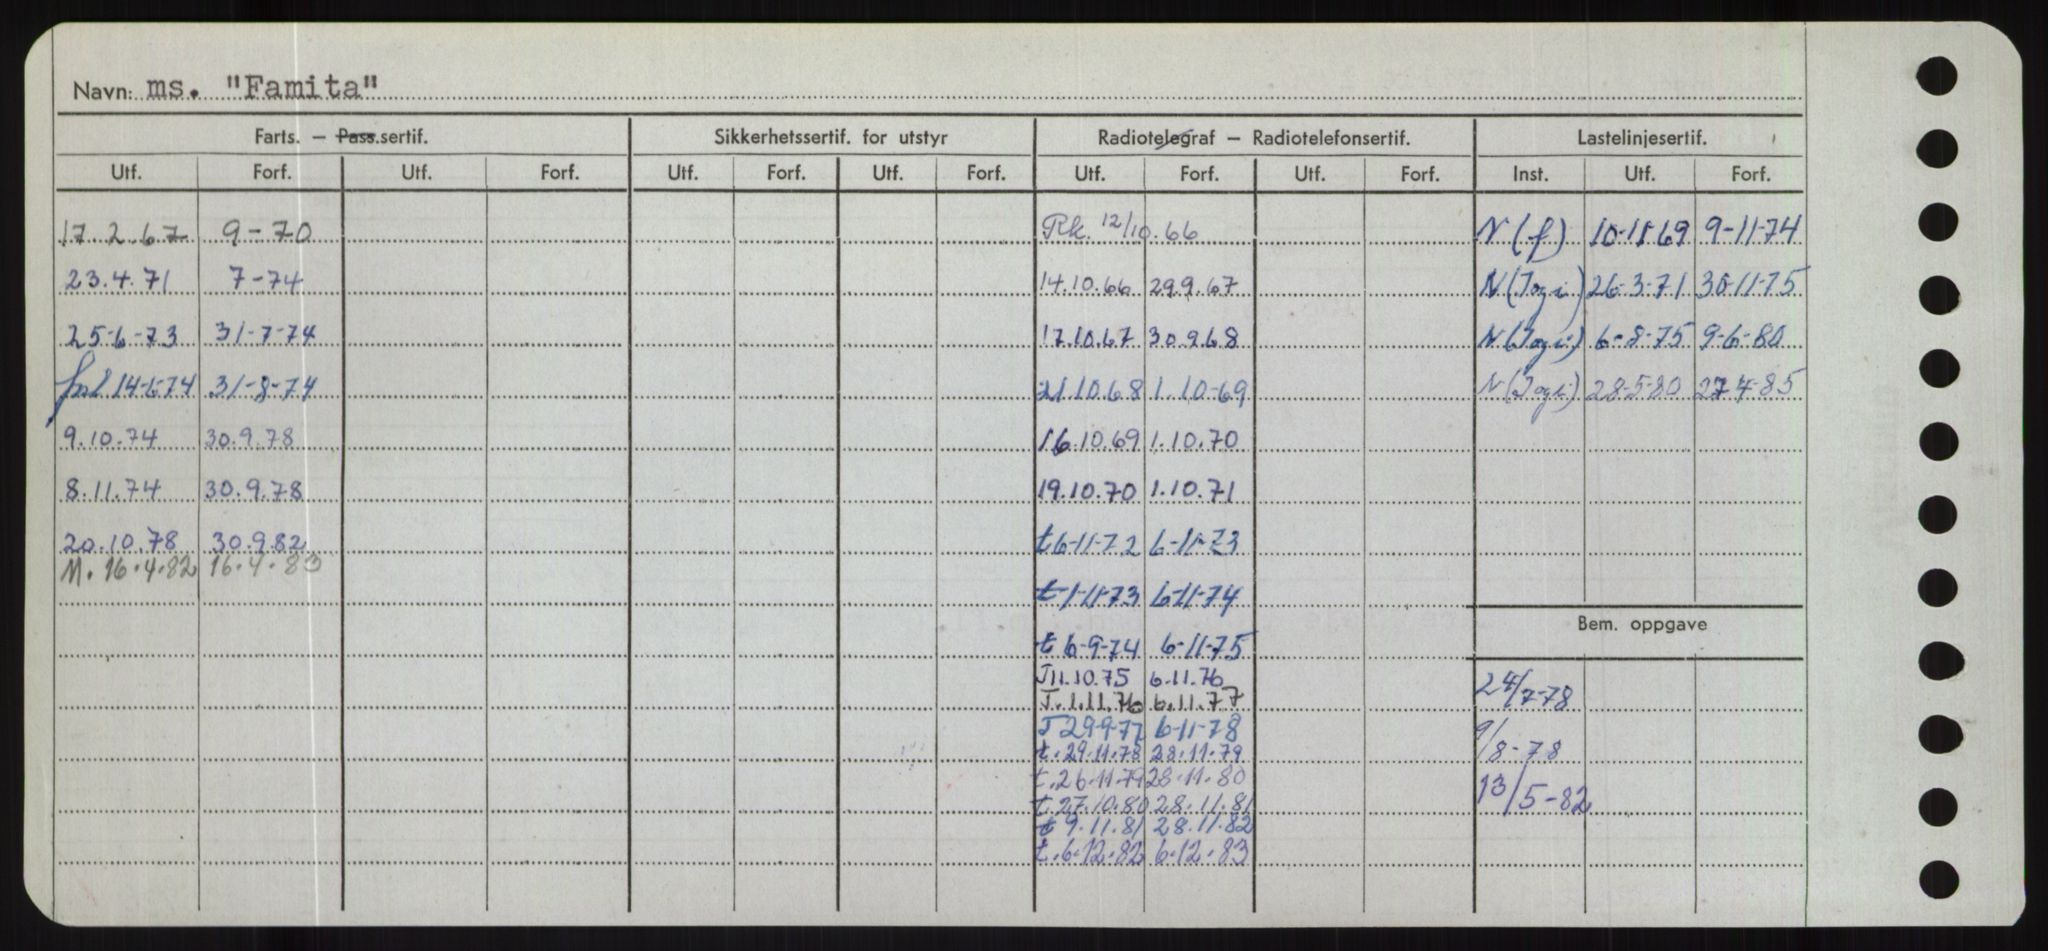 Navn: ms. "Famita"
Farts. — Pass.sertif. Sikkerhetssertif. for utstyr Radiotelegraf — Radiotelefonsertif. Lastelinjesertif.
Utf. Forf. Utf. Forf. Utf. Forf. Utf. Forf. Utf. Forf. Utf. Forf. Inst. Utf. Forf.
17.2.67 9-70 Rk. 12/10.66 N (f) 10-11-69 9-11-74
23.4.71 7-74 14.10.66 29.9.67 N (Togi) 26-3-71 30-11-75
25-6-73 31-7-74 17.10.67 30.9.68 N (Togi) 6-8-75 9-6-80
14-6-74 31-8-74 21.10.68 1.10-69 N (Togi) 28-5-80 27-4-85
9.10.74 30.9.78 16.10.69 1.10.70
8.11.74 30.9.78 19.10.70 1.10.71
20.10.78 30.9.82 t 6-11-72 6-11-73
M. 16.4.82 16.4.83
t 1-11-73 6-11-74
Bem. oppgave
t 6-9-74 6-11-75
T 11.10.75 6.11.76
24/7-78
T. 1.11.76 6.11.77
T 29-9-77 6-11-78
9/8-78
t. 29.11.78 28.11.79
t. 26.11.79 28.11.80
13/5-82
t. 27.10.80 28.11.81
t 9.11.81 28.11.82
t. 6.12.82 6.12.83